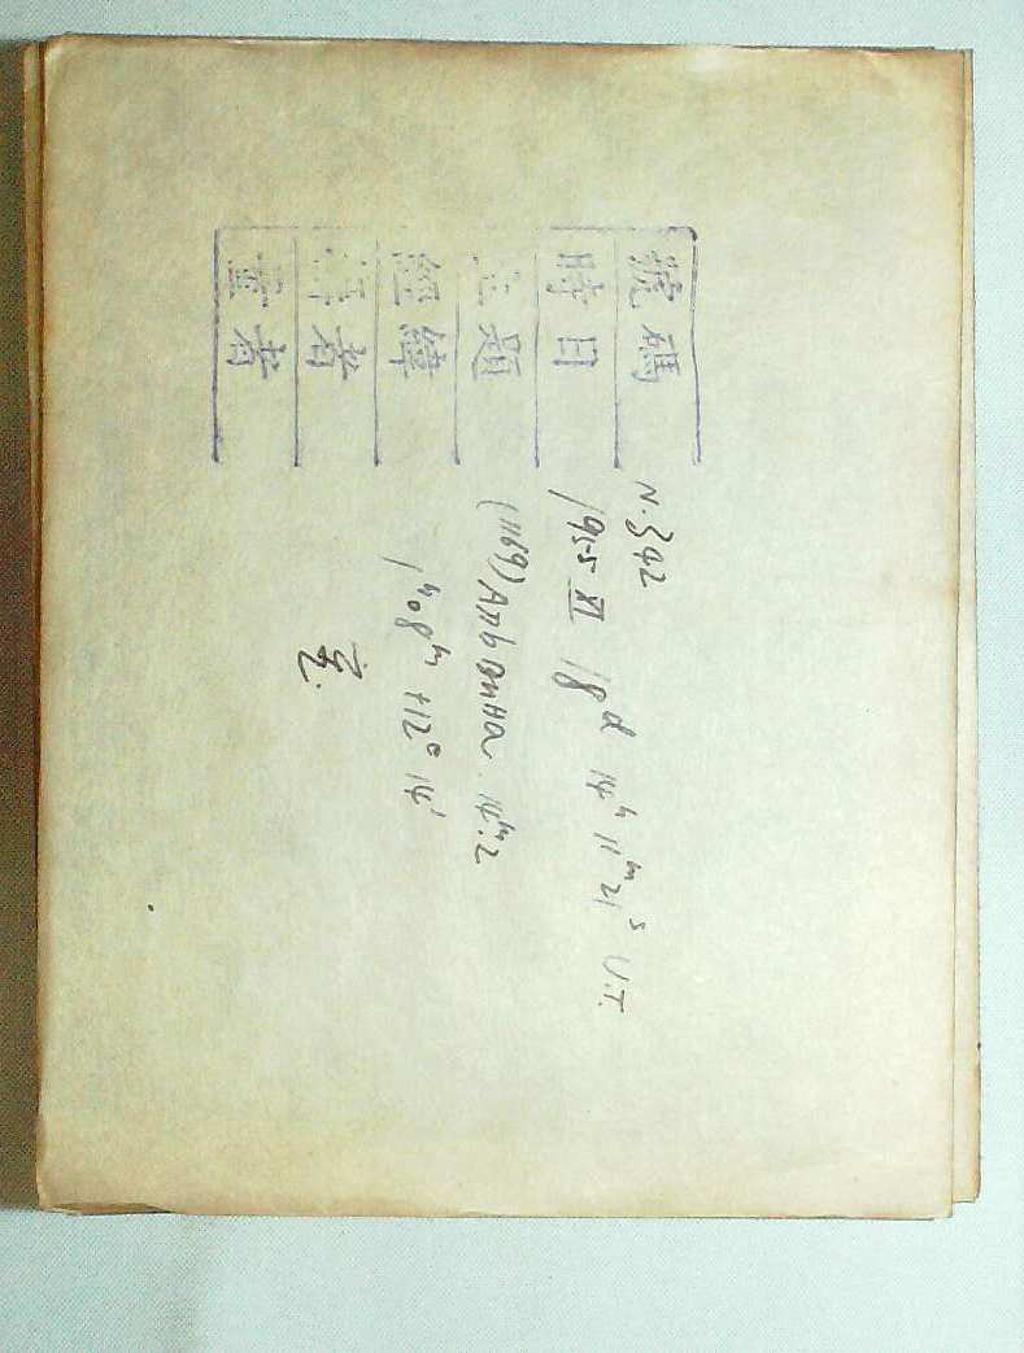 號碼 N.342
時日 1955 XI 18ᵈ 14ʰ 11ᵐ 21ˢ U.T.
主題 (1169) Альвина 14ᵐ.2
經緯 1ʰ 08ᵐ.4 +12° 14'
者
量者